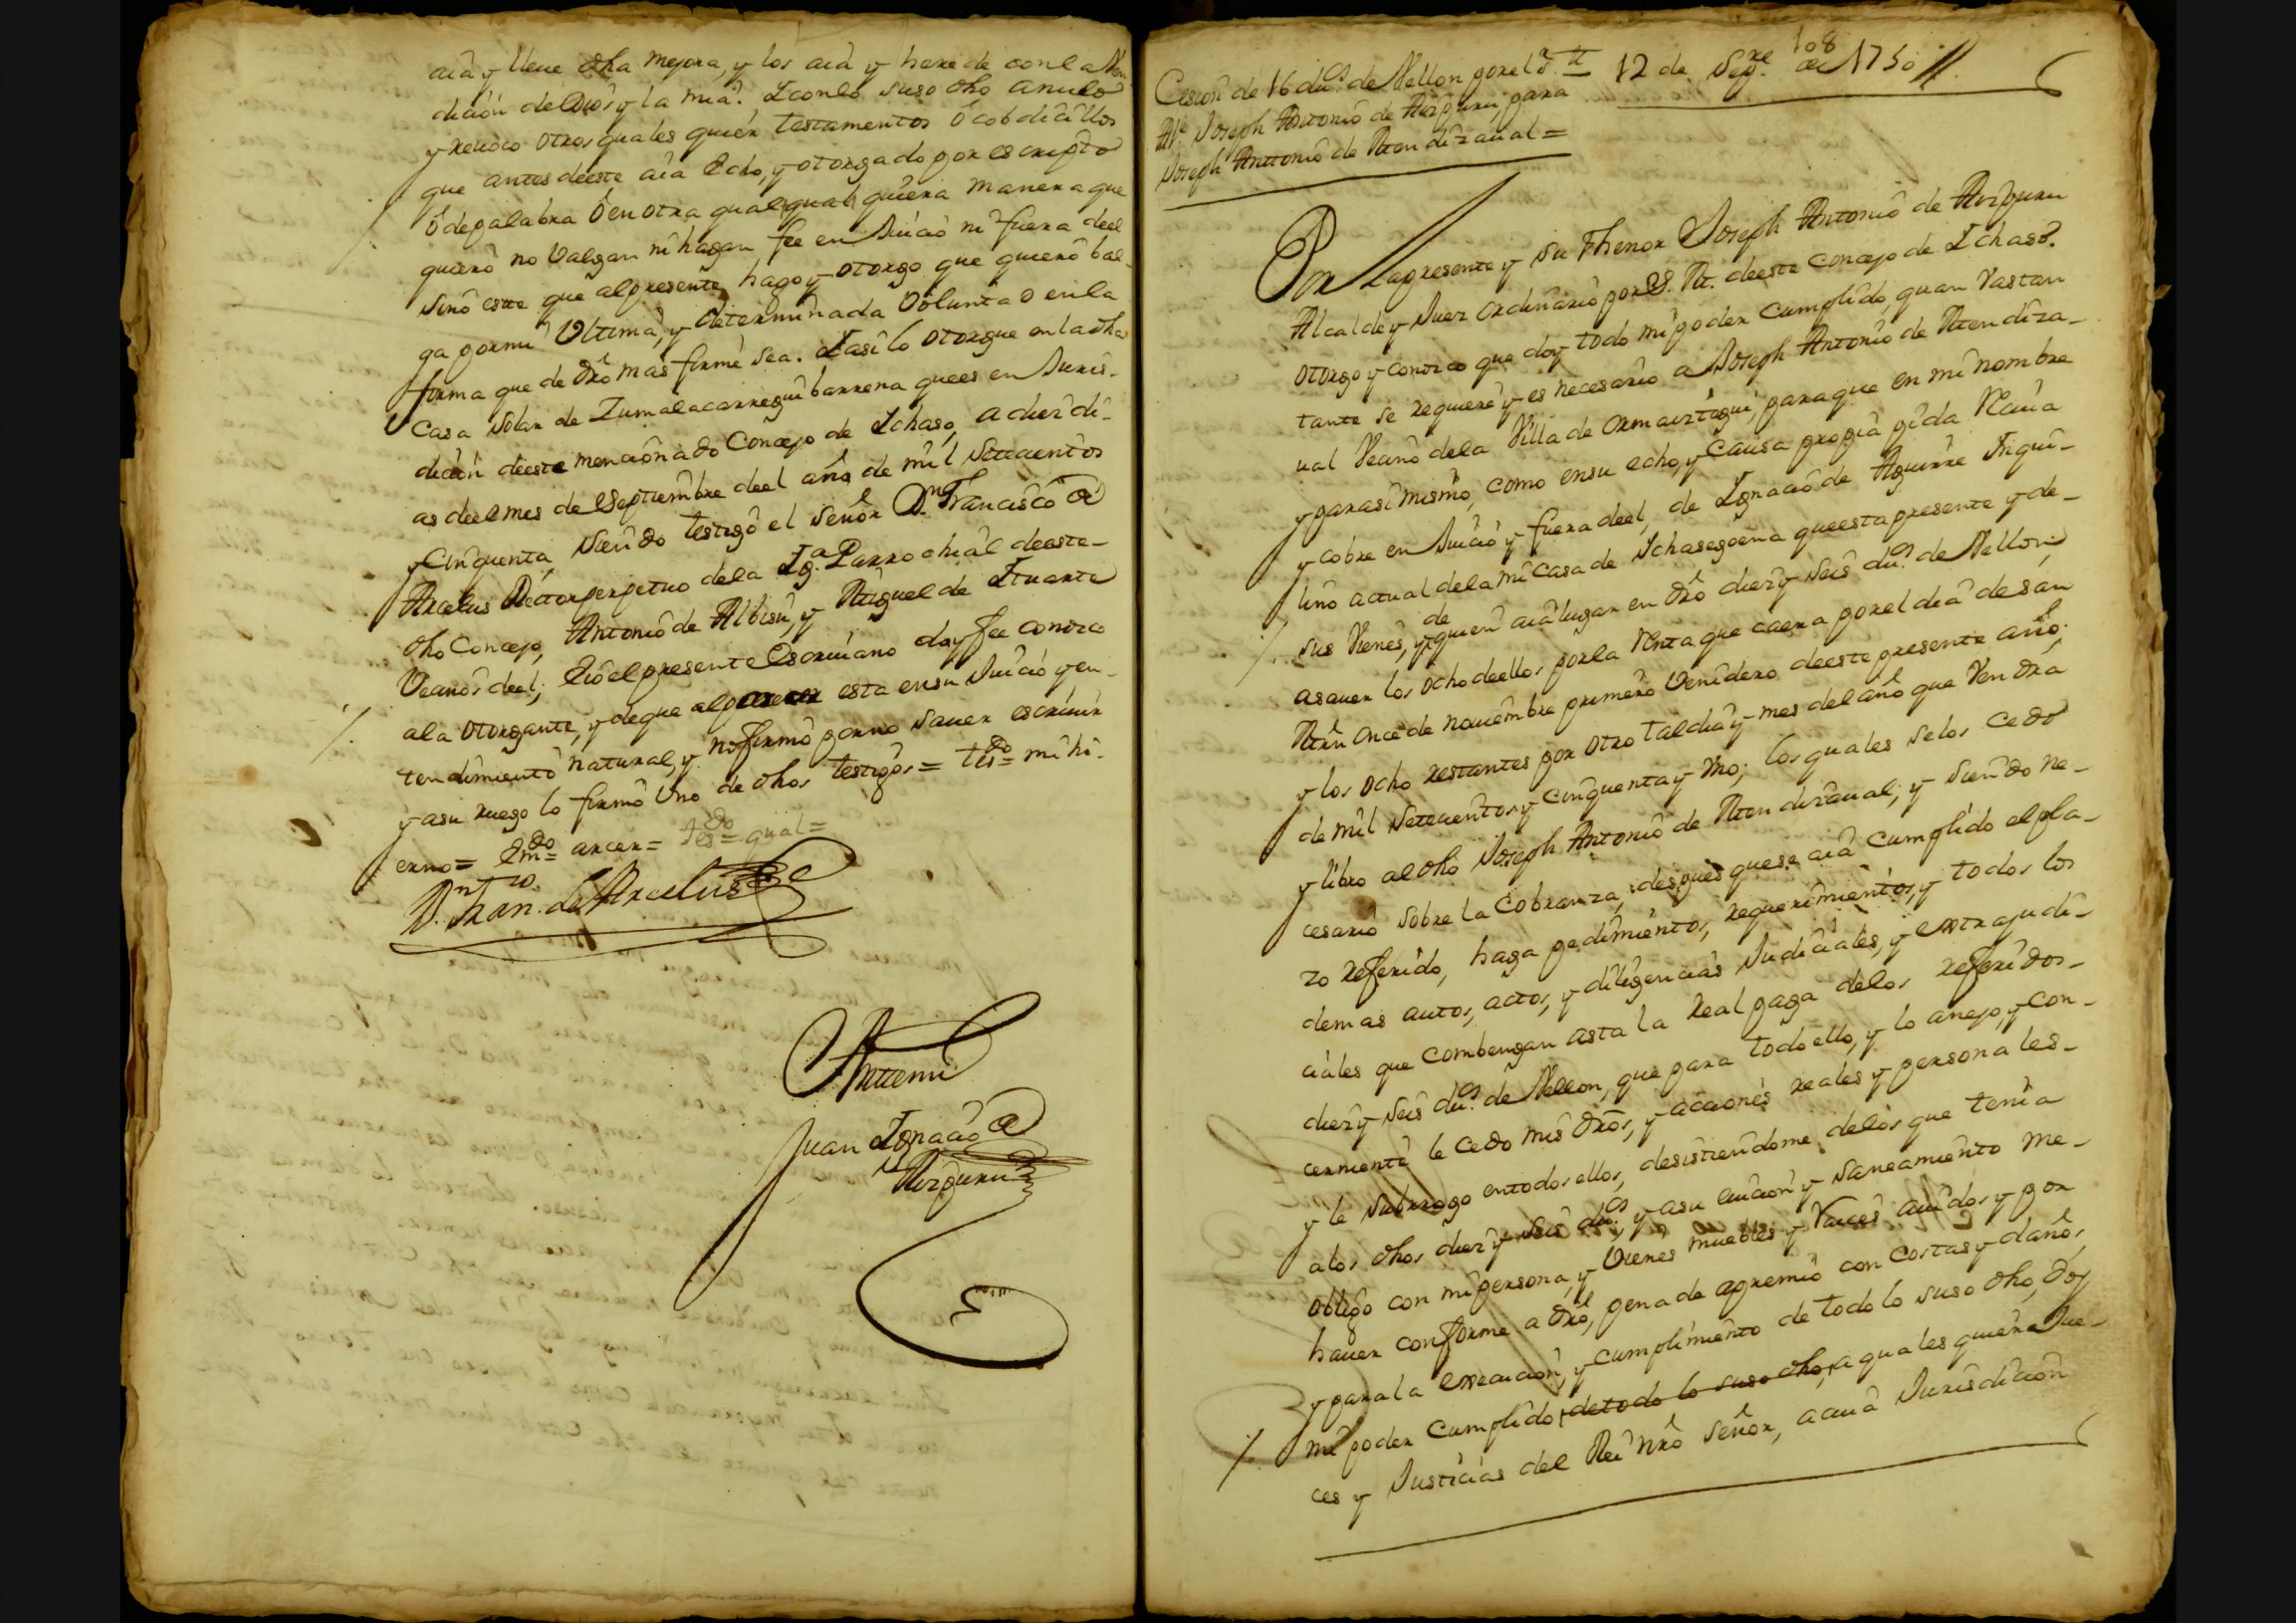 aia y lleue dha mejora, y los aia y herede con la Ven
dicion de Dios y la mia. I con lo suso dho anulo
y reuoco otros quales quier testamentos ó cobdicillos
que antes deeste aia Echo, y otorgado por escripto
ó de palabra ó en otra qual qual quiera manera que
quiero no Valgan ni hagan fee en Juicio ni fuera deel
sino este que al presente hago y otorgo que quiero bal-
ga por mi Ultima, y determinada Voluntad en la
forma que de dro mas firme sea. I asi lo otorgue en la dha
Casa solar de Zumalacarregui barrena quees en Juris-
dicion deeste mencionado Concejo de Ichaso, a diez di-
as deel mes de Septiembre deel año de mil Setecientos
y Cinquenta, siendo testigo el señor Dn. Francisco de
Arcelus Rector perpetuo dela Iga. Parrochial deeste
dho Concejo, Antonio de Albisu, y Miguel de Ituarte
Vecinos deel; E io el presente Escriuano doy fee conozco
ala otorgante, y de que al parecer esta en su Juicio y en-
tendimiento natural, y no firmó por no sauer escriuir
y asu ruego lo firmó Uno de dhos testigos = tesdo = mi hi-
erno = Emdo = arcer = tesdo = qual =
Dn. Fran.co de Arcelus
Anttemi
Juan Ignacio de
Aizpuru
108
Cesion de 16 dus. de Vellon por el Sr.
Ale. Joseph Antonio de Aizpuru, para
Joseph Anttonio de Mendizaual =
12 de Sepre. de 1750
Por La presente y su thenor Joseph Antonio de Aizpuru
Alcalde y Juez ordinario por S. M. deeste Concejo de Ichaso.
otorgo y conozco que doy todo mi poder Cumplido, quan Vastan
tante se requiere y es necesario a Joseph Antonio de Mendiza-
ual Vecino dela Villa de Ormaiztegui, para que en mi nombre
y para si mismo, como en su echo, y Causa propia pida Reciua
y cobre en Juicio y fuera deel, de Ignacio de Aguirre Inqui-
lino actual dela mi Casa de Ichasogoena queesta presente y de-
sus Vienes, y de quien aia lugar en dro diez y seis dus. de Vellon;
asauer los ocho deellos por la Renta que caera por el dia de san
Mrn once de nouiembre primero Venidero deeste presente año;
y los ocho restantes por otro tal dia y mes del año que Vendra
de mil setecientos y cinquenta y Uno; los quales selos Cedo
y libro al dho Joseph Antonio de Mendizaual; y siendo ne-
cesario sobre la Cobranza, despues quese aia Cumplido el pla-
zo Referido, haga pedimientos, requerimientos, y todos los
demas autos, actos, y diligencias Judiciales, y extrajudi-
ciales que Combengan asta la Real paga delos referidos-
diez y seis dus. de Vellon, que para todo ello, y lo anejo, y con-
cerniente le cedo mis dros, y acciones reales y personales-
y le subrrogo en todos ellos, desistiendome delos que tenia
alos dhos diez y seis dus. y asu euicion y saneamiento me-
obligo con mi persona, y Vienes muebles y raices auidos y por
hauer conforme a dro, pena de apremio con costas y daños,
y para la execucion, y cumplimiento de todo lo suso dho, doy
mi poder Cumplido, de todo lo suso dho, a quales quiera Jue-
ces y Justicias del Rei Nro Señor, a cuia Jurisdicion